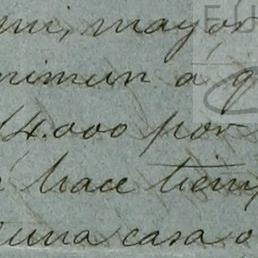 mayor
nimun a q
4.000 por
hace tiem
una casa o